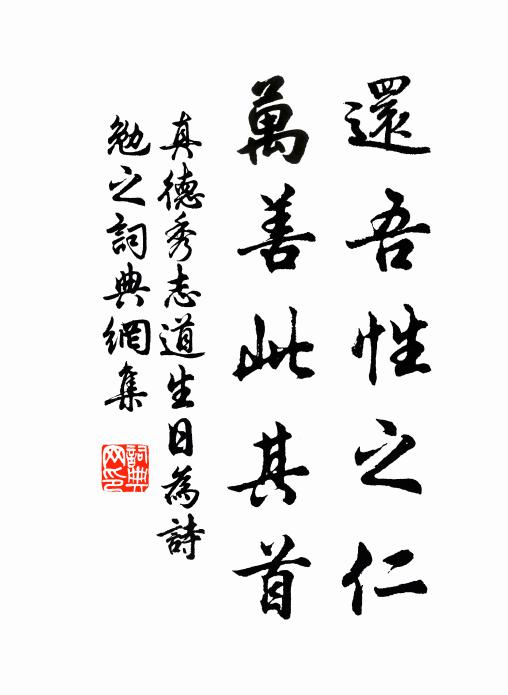 還吾性之仁
萬善此其首
真德秀志道生日為詩
勉之詞典網集
詞典
网印